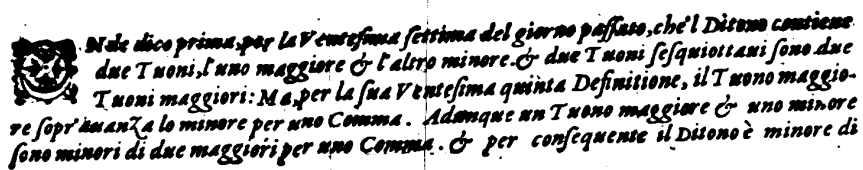 Nde dico prima, per la Ventesima settima del giorno passato, che'l Ditono contiene
due Tuoni, l'uno maggiore & l'altro minore. & due Tuoni sesquiottaui sono due
Tuoni maggiori: Ma, per la sua Ventesima quinta Definitione, il Tuono maggio-
re sopr'auanza lo minore per uno Comma. Adunque un Tuono maggiore & uno minore
sono minori di due maggiori per uno Comma. & per consequente il Ditono è minore di